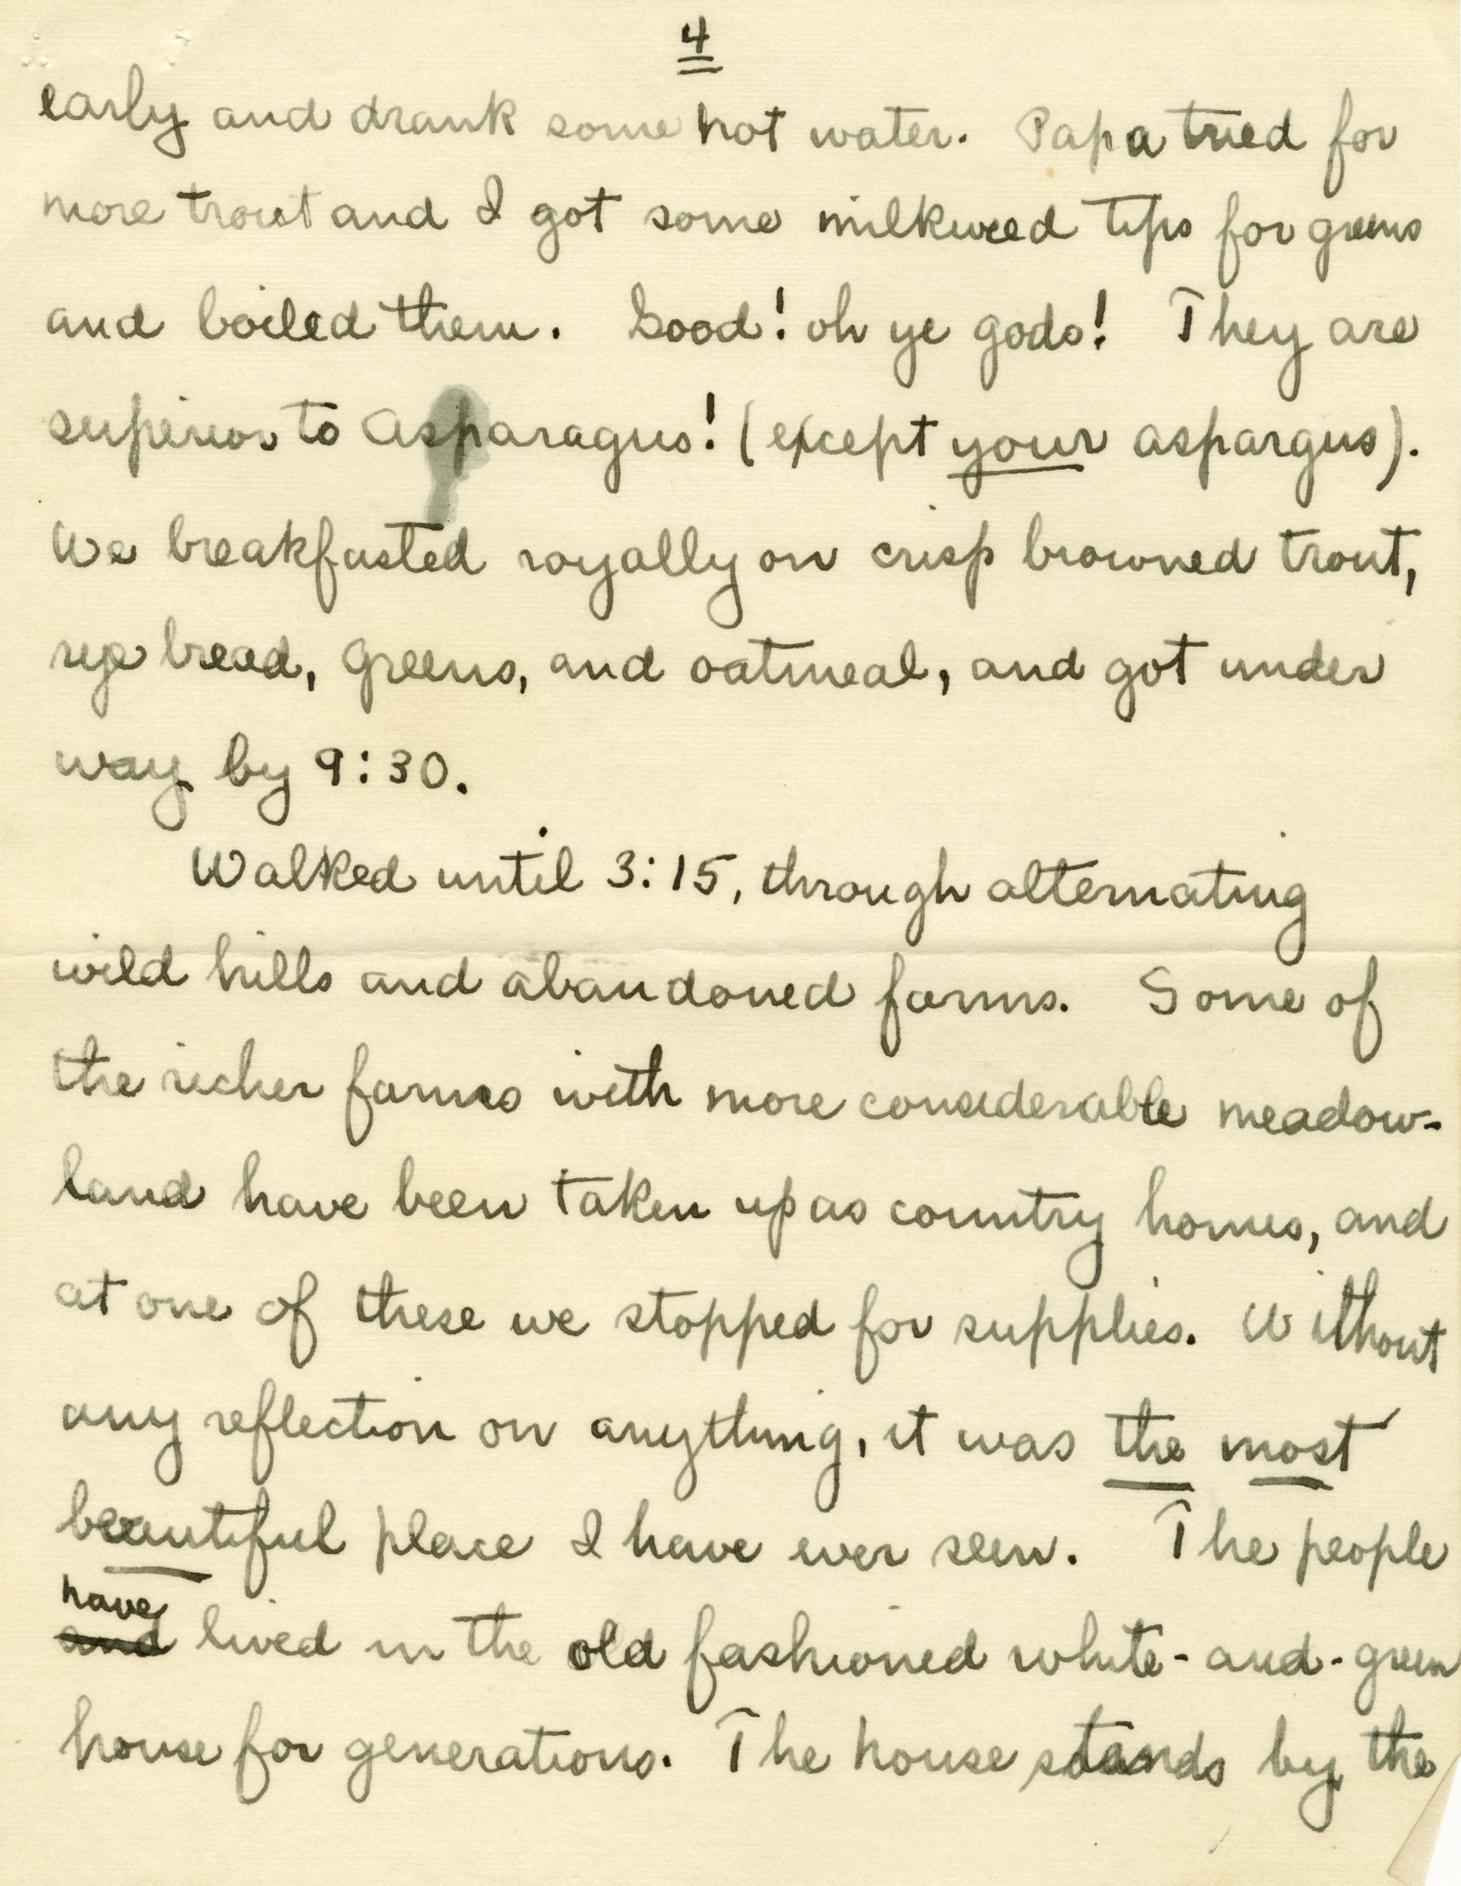 4
early and drank some hot water. Papa tried for
more trout and I got some milkweed tips for greens
and boiled them. Good! oh ye gods! They are
superior to asparagus! (except your aspargus).
We breakfasted royally on crisp browned trout,
rye bread, greens, and oatmeal, and got under
way by 9:30.
Walked until 3:15, through alternating
wild hills and abandoned farms. Some of
the richer farms with more considerable meadow-
land have been taken up as country homes, and
at one of these we stopped for supplies. Without
any reflection on anything, it was the most
beautiful place I have ever seen. The people
have
and lived in the old fashioned white-and-green
house for generations. The house stands by the